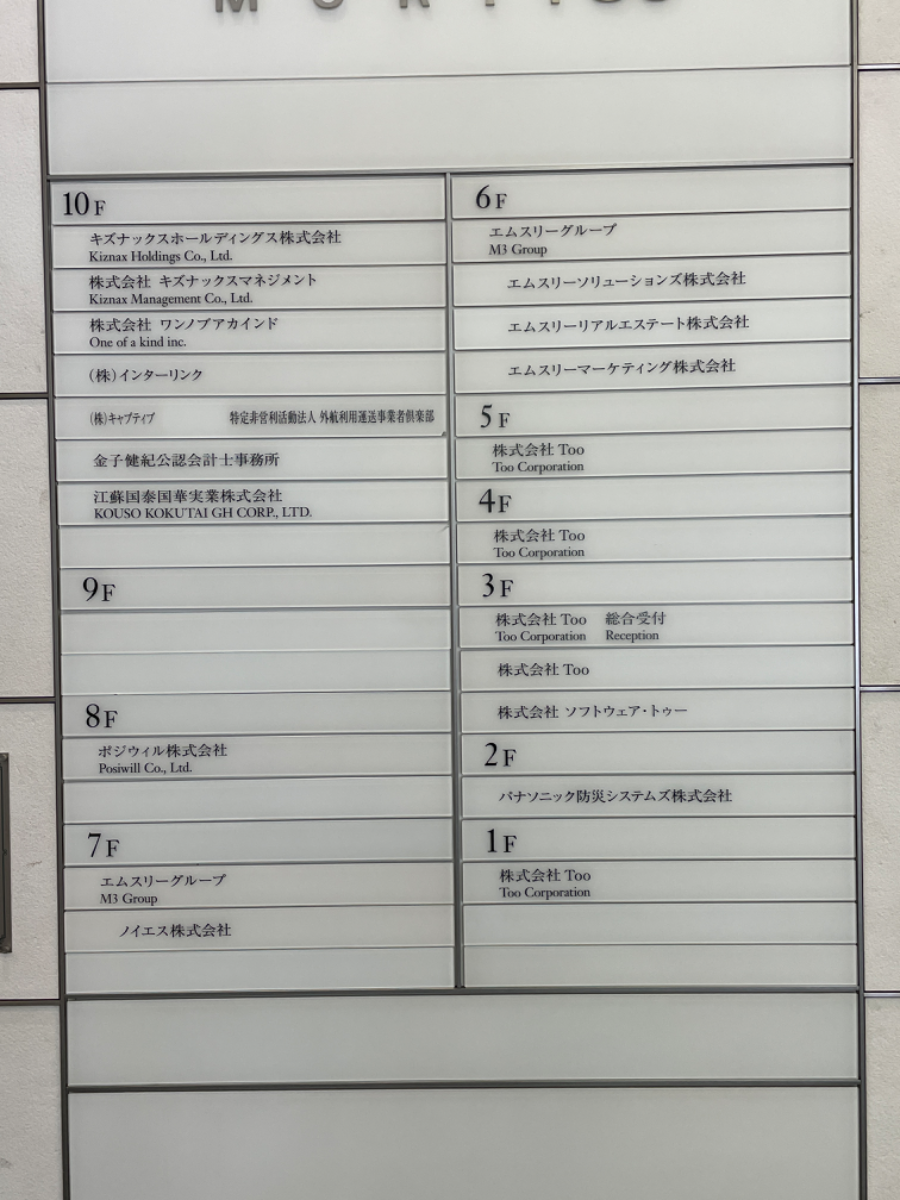 10F
キズナックスホールディングス株式会社
Kiznax Holdings Co., Ltd.
株式会社 キズナックスマネジメント
Kiznax Management Co., Ltd.
株式会社 ワンノブアカインド
One of a kind inc.
(株)インターリンク
(株)キャプティブ 特定非営利活動法人 外航利用運送事業者倶楽部
金子健紀公認会計士事務所
江蘇国泰国華実業株式会社
KOUSO KOKUTAI GH CORP., LTD.
9F
8F
ポジウィル株式会社
Posiwill Co., Ltd.
7F
エムスリーグループ
M3 Group
ノイエス株式会社
6F
エムスリーグループ
M3 Group
エムスリーソリューションズ株式会社
エムスリーリアルエステート株式会社
エムスリーマーケティング株式会社
5F
株式会社 Too
Too Corporation
4F
株式会社 Too
Too Corporation
3F
株式会社 Too 総合受付
Too Corporation Reception
株式会社 Too
株式会社 ソフトウェア・トゥー
2F
パナソニック防災システムズ株式会社
1F
株式会社 Too
Too Corporation